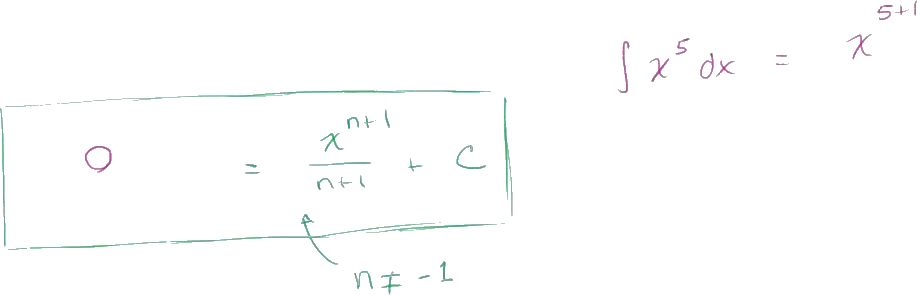 ∫ x^5 dx = x^{5+1}
O = \frac{x^{n+1}}{n+1} + C
n ≠ -1